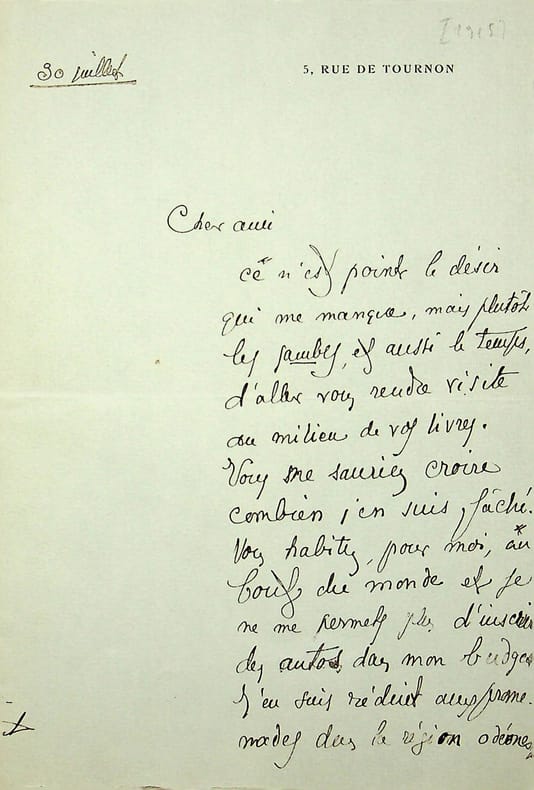 [1915]
30 juillet
5, RUE DE TOURNON
Cher ami
ce n'est point le désir
qui me manque, mais plutôt
les jambes, et aussi le temps,
d'aller vous rendre visite
au milieu de vos livres.
Vous ne sauriez croire
combien j'en suis fâché.
Vous habitez, pour moi, au
bout du monde et je
ne me permets plus d'inscrire
des autos dans mon budget
J'en suis réduit aux prome-
nades dans la région odéones